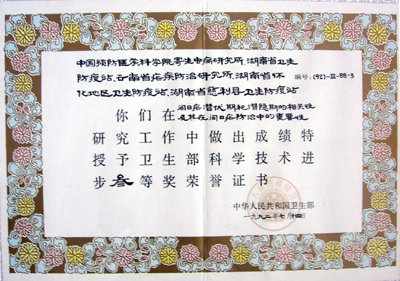 中国预防医学科学院寄生虫病研究所、湖南省卫生
防疫站、云南省疟疾防治研究所、湖南省怀
编号:(92)-Ⅲ-88-3
化地区卫生防疫站、湖南省慈利县卫生防疫站
你们在间日疟潜伏期和潜隐期的相关性
及其在间日疟防治中的重要性
研究工作中做出成绩特
授予卫生部科学技术进
步叁等奖荣誉证书
中华人民共和国卫生部
一九九二年七月